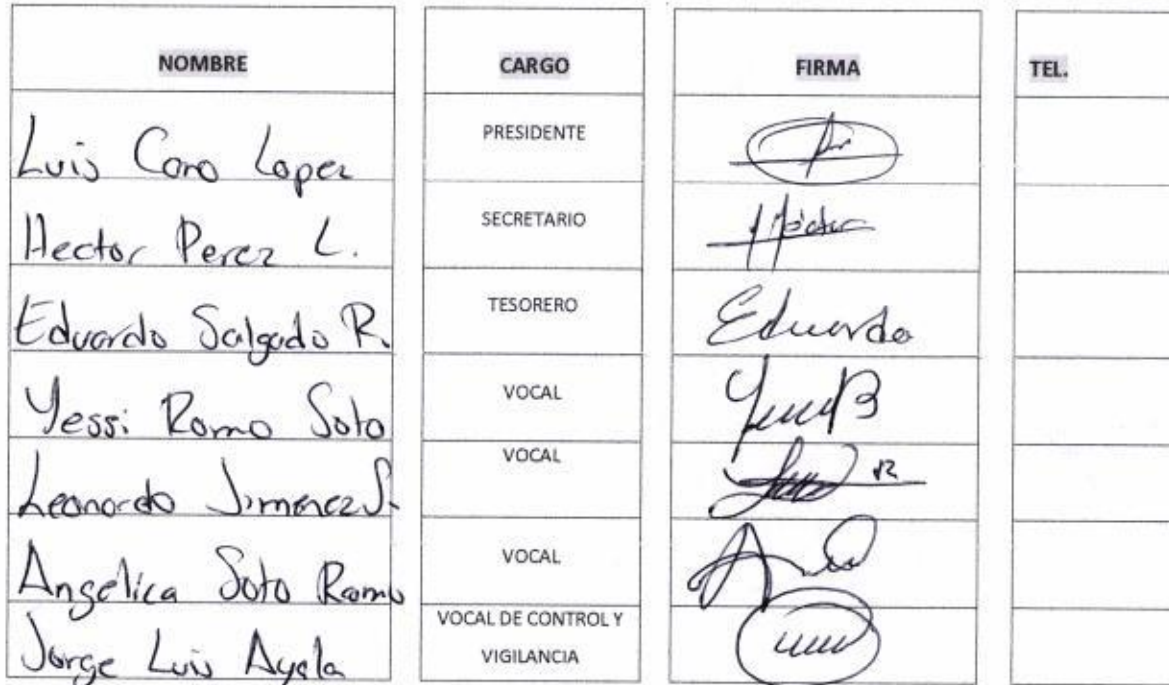 NOMBRE CARGO FIRMA TEL.
Luis Caro Lopez PRESIDENTE
Hector Perez L. SECRETARIO Héctor
Eduardo Salgado R. TESORERO Eduardo
Yessi Romo Soto VOCAL
Leonardo Jimenez S. VOCAL
Angelica Soto Romo VOCAL
Jorge Luis Ayala VOCAL DE CONTROL Y
VIGILANCIA